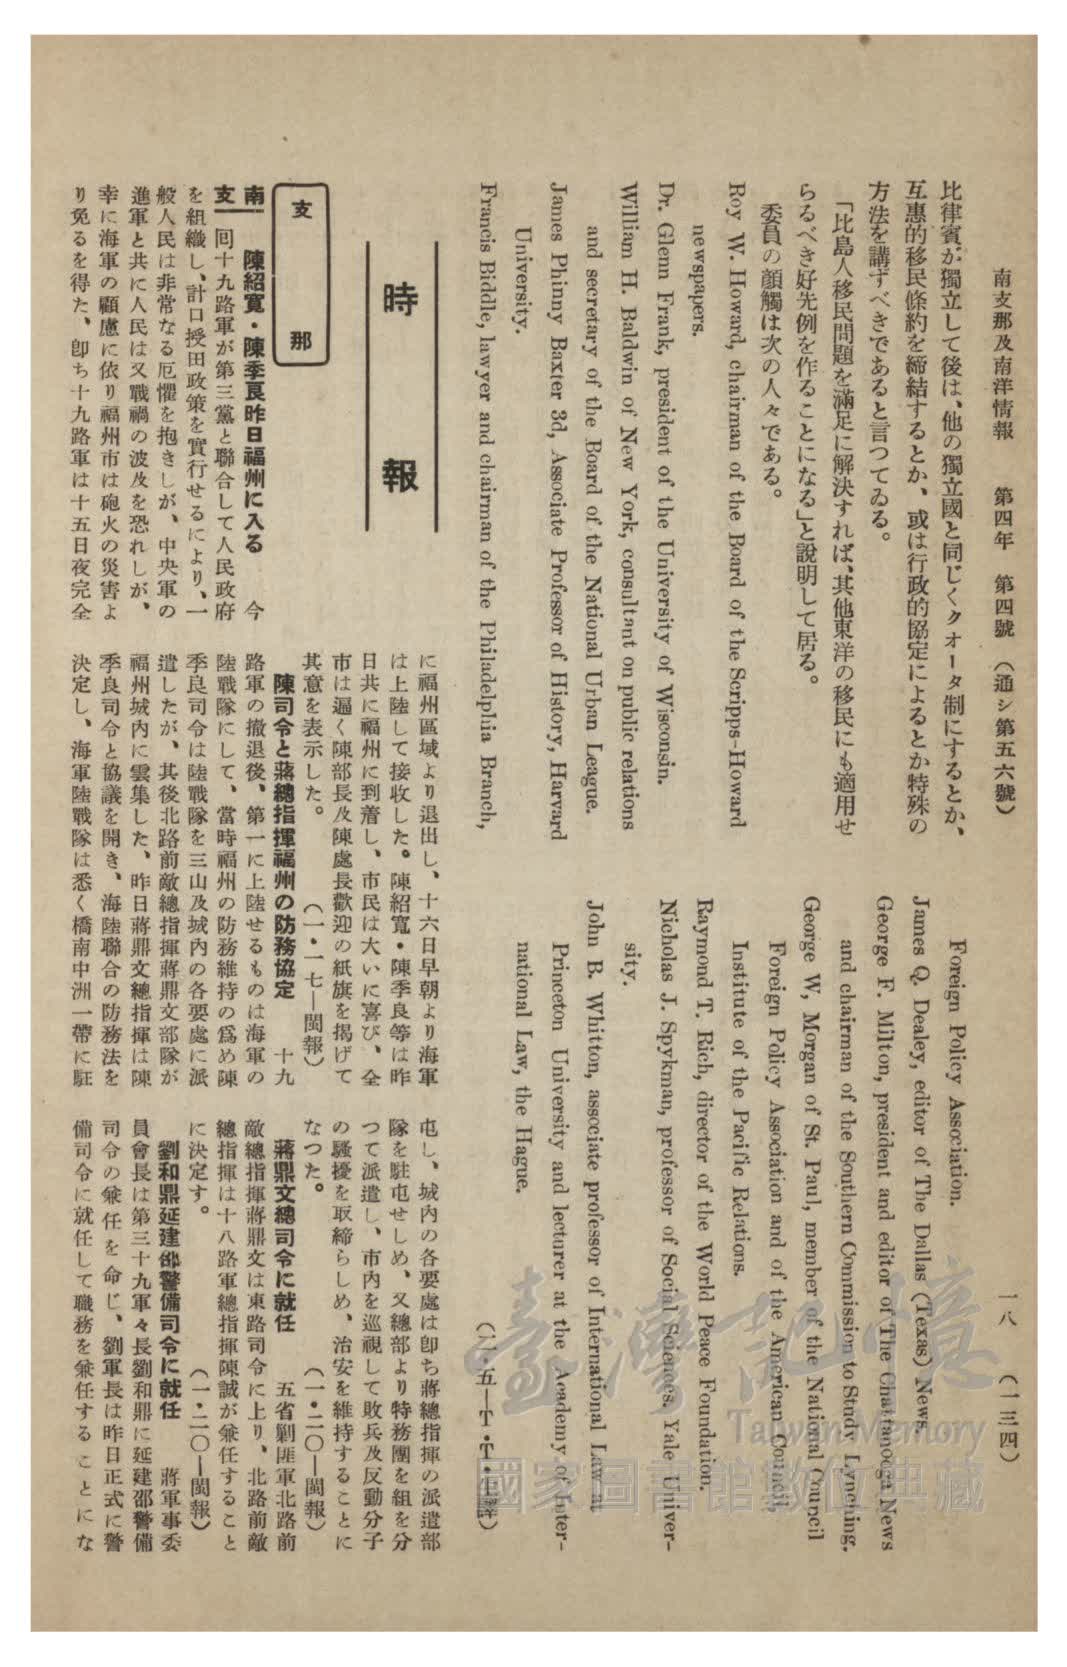 南支那及南洋情報　第四年　第四號　（通シ第五六號）
一八　（一三四）
比律賓が獨立して後は、他の獨立國と同じくクオータ制にするとか、
互惠的移民條約を締結するとか、或は行政的協定によるとか特殊の
方法を講ずべきであると言つてゐる。
「比島人移民問題を滿足に解決すれば、其他東洋の移民にも適用せ
らるべき好先例を作ることになる」と說明して居る。
委員の顏觸は次の人々である。
Roy W. Howard, chairman of the Board of the Scripps-Howard
newspapers.
Dr. Glenn Frank, president of the University of Wisconsin.
William H. Baldwin of New York, consultant on public relations
and secretary of the Board of the National Urban League.
James Phinny Baxter 3d, Associate Professor of History, Harvard
University.
Francis Biddle, lawyer and chairman of the Philadelphia Branch,
Foreign Policy Association.
James Q. Dealey, editor of The Dallas (Texas) News.
George F. Milton, president and editor of The Chattanooga News
and chairman of the Southern Commission to Study Lynching.
George W, Morgan of St. Paul, member of the National Council
Foreign Policy Association and of the American Council,
Institute of the Pacific Relations.
Raymond T. Rich, director of the World Peace Foundation.
Nicholas J. Spykman, professor of Social Sciences. Yale Univer-
sity.
John B. Whitton, associate professor of International Law at
Princeton University and lecturer at the Academy of Inter-
national Law, the Hague.
時報
支那
南支
陳紹寬・陳季良昨日福州に入る　今
回十九路軍が第三黨と聯合して人民政府
を組織し、計口授田政策を實行せるにより、一
般人民は非常なる厄懼を抱きしが、中央軍の
進軍と共に人民は又戰禍の波及を恐れしが、
幸に海軍の顧慮に依り福州市は砲火の災害よ
り免るを得た、卽ち十九路軍は十五日夜完全
に福州區域より退出し、十六日早朝より海軍
は上陸して接收した。陳紹寬・陳季良等は昨
日共に福州に到着し、市民は大いに喜び、全
市は遍く陳部長及陳處長歡迎の紙旗を揭げて
其意を表示した。　（一・一七—閩報）
陳司令と蔣總指揮福州の防務協定　十九
路軍の撤退後、第一に上陸せるものは海軍の
陸戰隊にして、當時福州の防務維持の爲め陳
季良司令は陸戰隊を三山及城內の各要處に派
遣したが、其後北路前敵總指揮蔣鼎文部隊が
福州城內に雲集した、昨日蔣鼎文總指揮は陳
季良司令と協議を開き、海陸聯合の防務法を
決定し、海軍陸戰隊は悉く橋南中洲一帶に駐
屯し、城內の各要處は卽ち蔣總指揮の派遣部
隊を駐屯せしめ、又總部より特務團を組を分
つて派遣し、市內を巡視して敗兵及反動分子
の騷擾を取締らしめ、治安を維持することに
なつた。　（一・二〇—閩報）
蔣鼎文總司令に就任　五省剿匪軍北路前
敵總指揮蔣鼎文は東路司令に上り、北路前敵
總指揮は十八路軍總指揮陳誠が兼任すること
に決定す。　（一・二〇—閩報）
劉和鼎延建邵警備司令に就任　蔣軍事委
員會長は第三十九軍々長劉和鼎に延建邵警備
司令の兼任を命じ、劉軍長は昨日正式に警
備司令に就任して職務を兼任することにな
臺灣記憶
Taiwan Memory
國家圖書館數位典藏